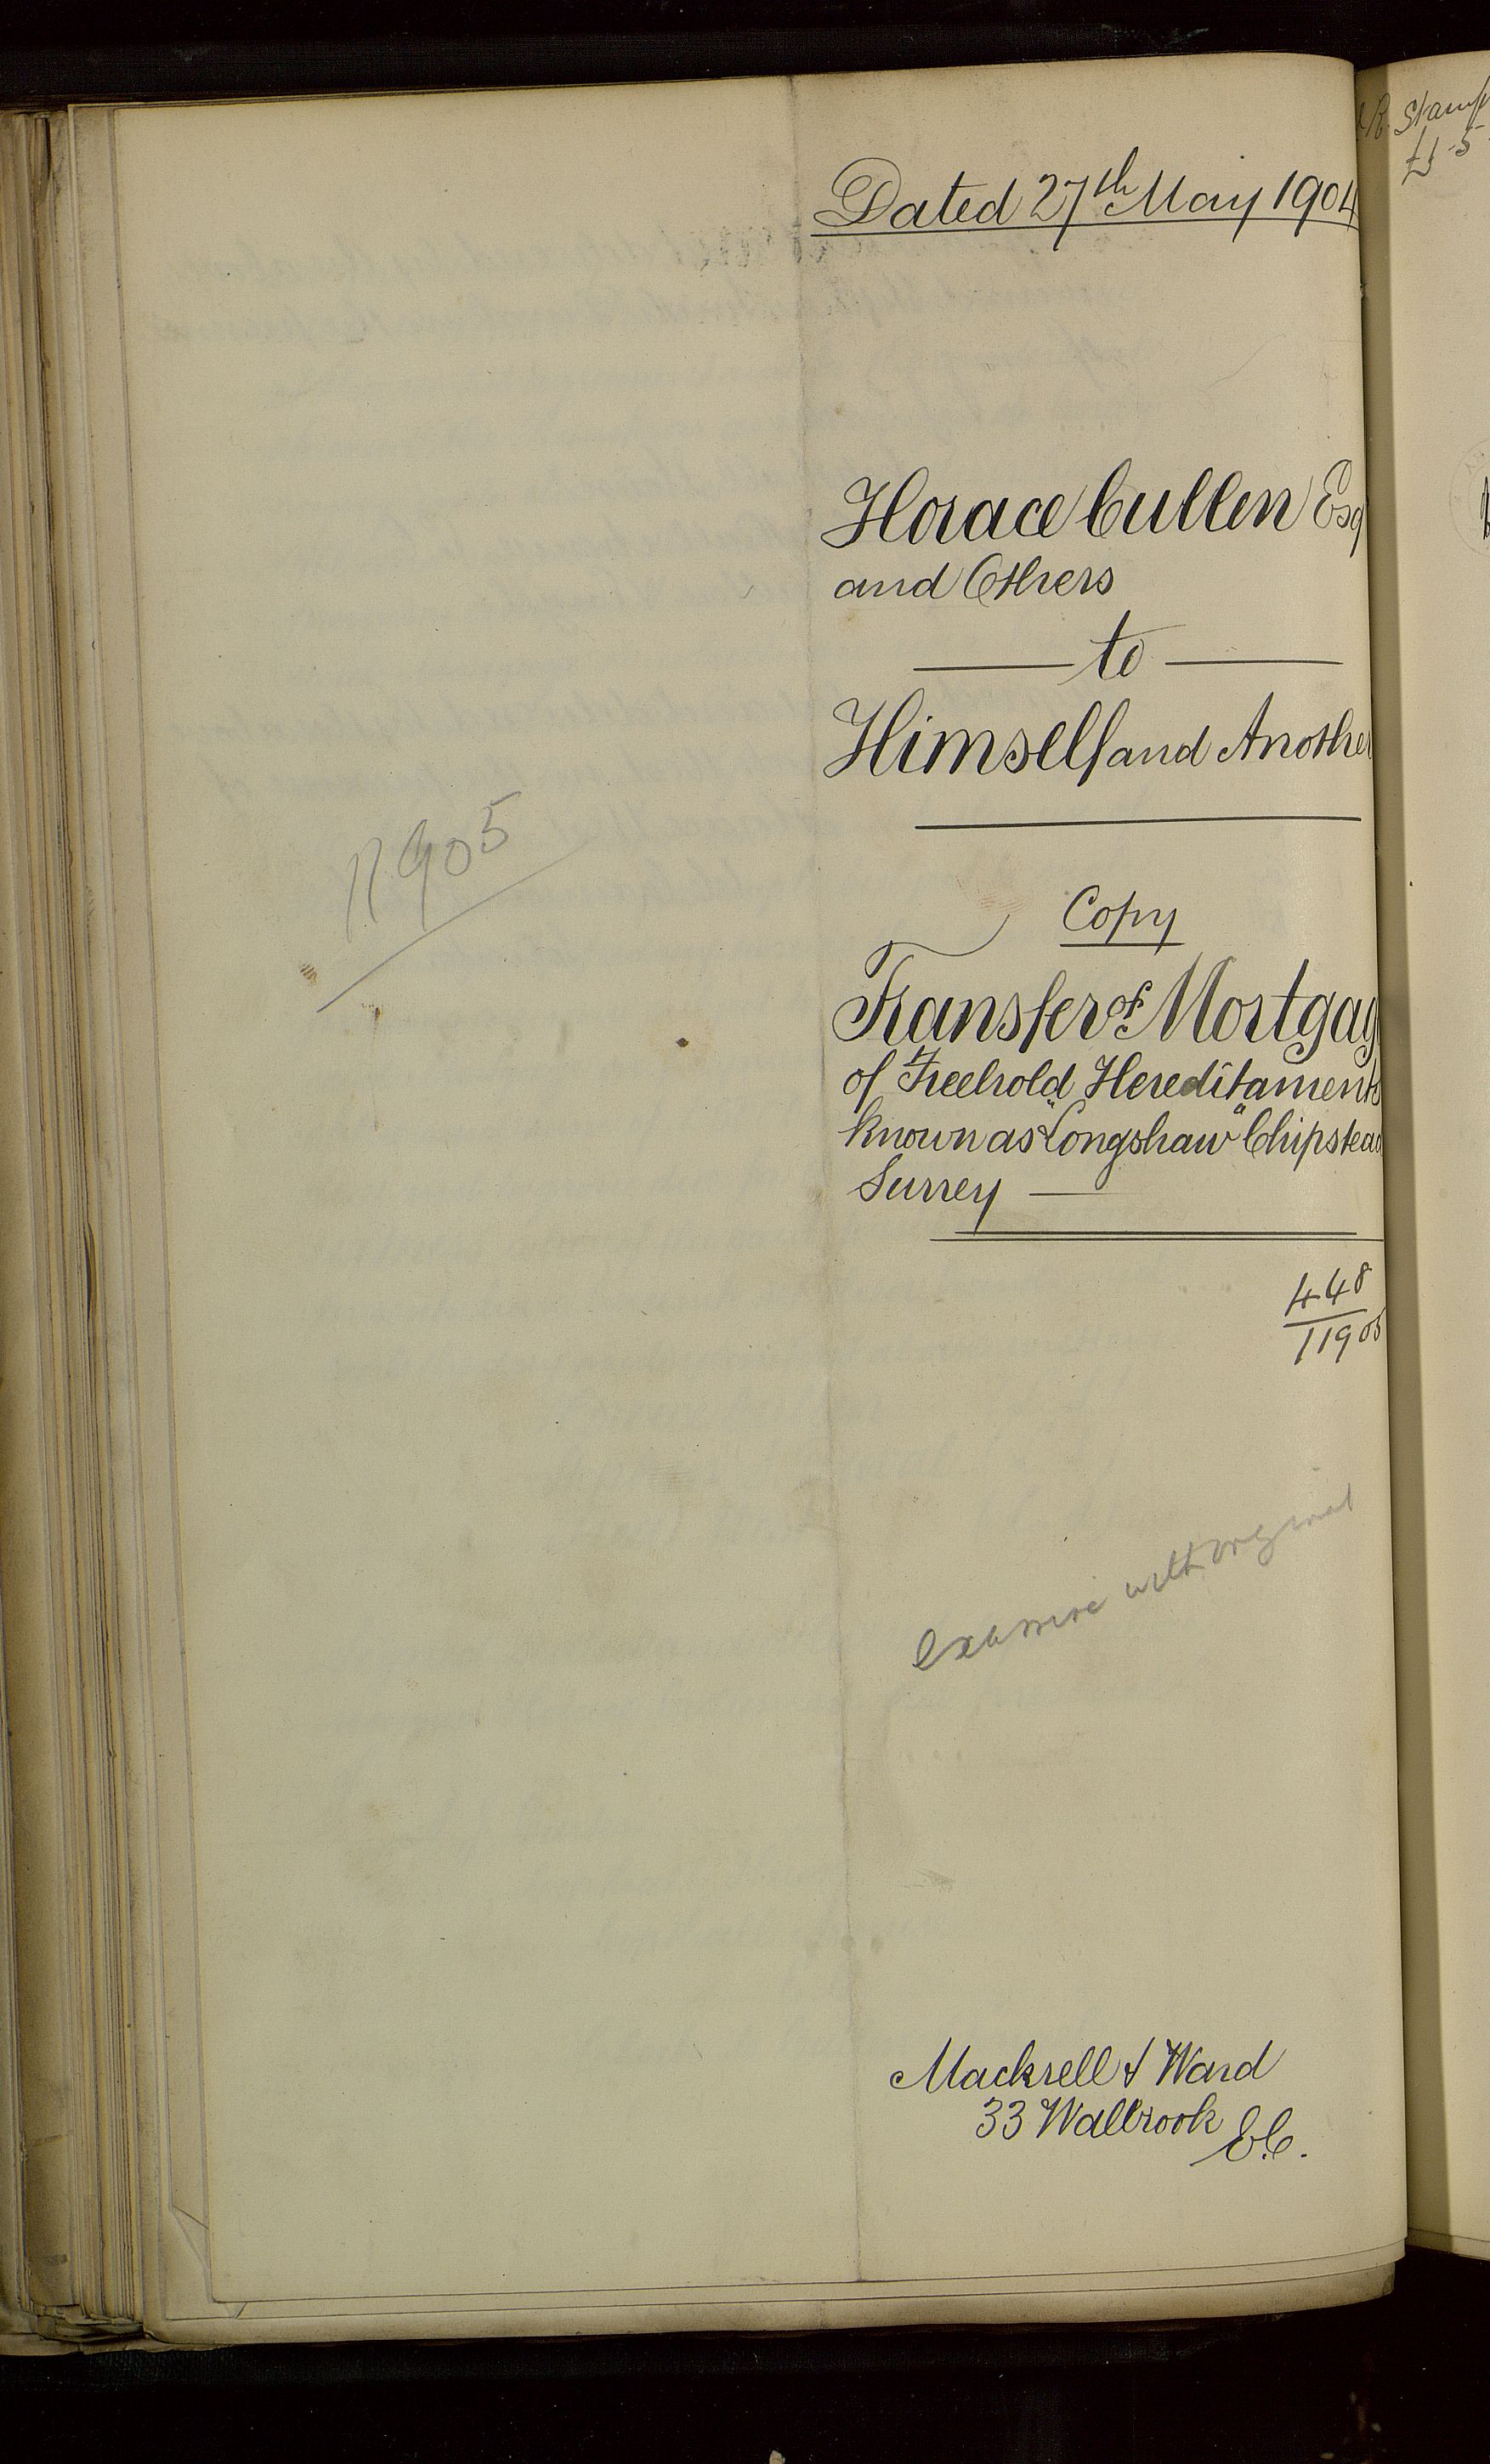 Dated 27th May 1904
Horace Cullen Esq
and Others
to
Himself and Another
Copy
Transfer of Mortgag
of Freehold Hereditaments
known as "Longshaw" Chipstead
Surrey
448
11905
11905
examine with original
Mackrell & Ward
33 Walbrook
E.C.
Stamp
£1 5